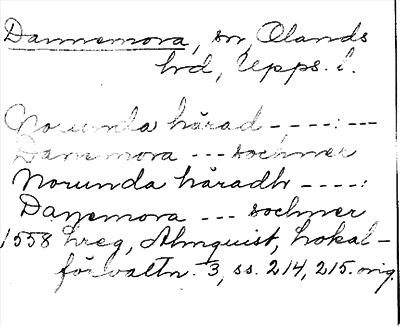 Dannemora, sn, Olands
hrd, Upps. l.
Norunda härad - - - - : - - -
Danemora - - - sochner
Norunda häradh - - - - :
Danemora - - - sochner
1558 hreg, Almquist, Lokal-
förvaltn. 3, ss. 214, 215. orig.